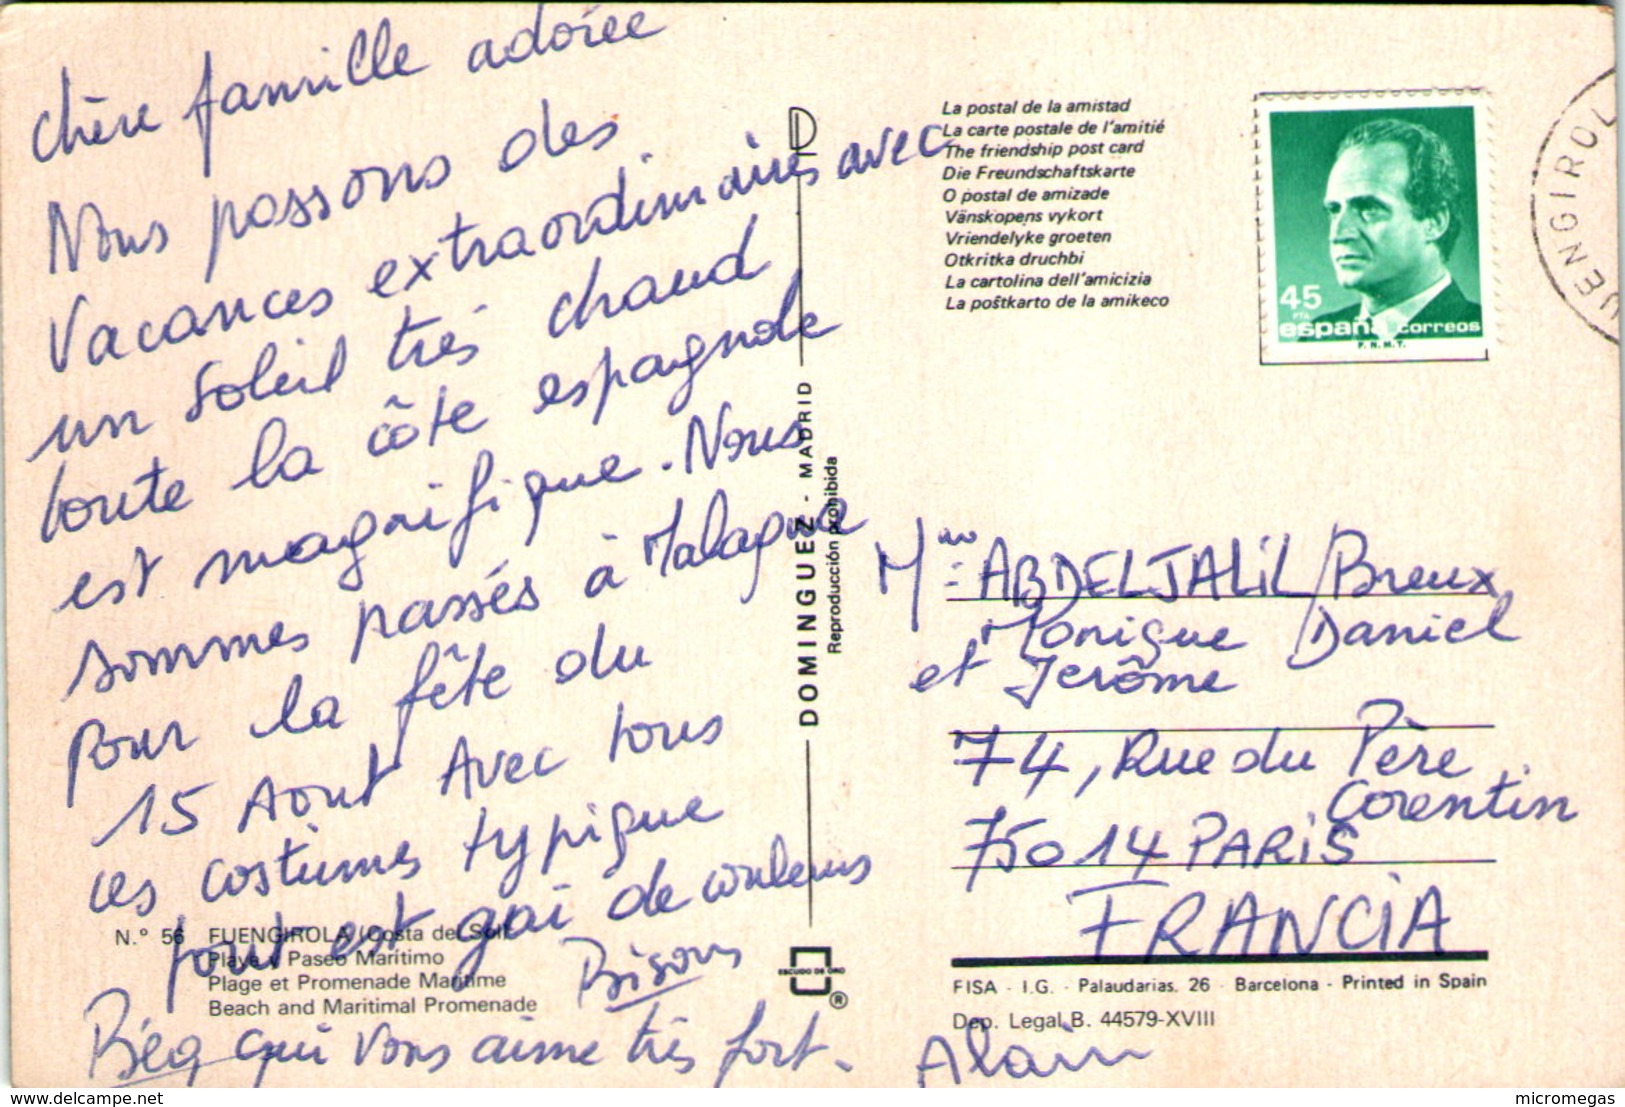 chère famille adorée
Nous passons des
Vacances extraordinaires avec
un soleil très chaud
toute la côte espagnole
est magnifique. Nous
sommes passés à Malague
pour la fête du
15 Aout Avec tous
ces costumes typique
tout est gai de couleurs
Bisous
Béa qui vous aime très fort.
Alain
N.° 56 FUENGIROLA (Costa del Sol)
Playa y Paseo Marítimo
Plage et Promenade Maritime
Beach and Maritimal Promenade
DOMINGUEZ - MADRID
Reproducción prohibida
ESCUDO DE ORO
®
La postal de la amistad
La carte postale de l'amitié
The friendship post card
Die Freundschaftskarte
O postal de amizade
Vänskopens vykort
Vriendelyke groeten
Otkritka druchbi
La cartolina dell'amicizia
La poŝtkarto de la amikeco
45
PTA
españa correos
F.N.M.T.
UENGIROL
ABDELJALiL/Breux
Monique Daniel
et Jerôme
74, Rue du Père
Corentin
75014 PARiS
FRANCiA
FISA - I.G. - Palaudarias, 26 - Barcelona - Printed in Spain
Dep. Legal B. 44579-XVIII
delcampe.net
micromegas